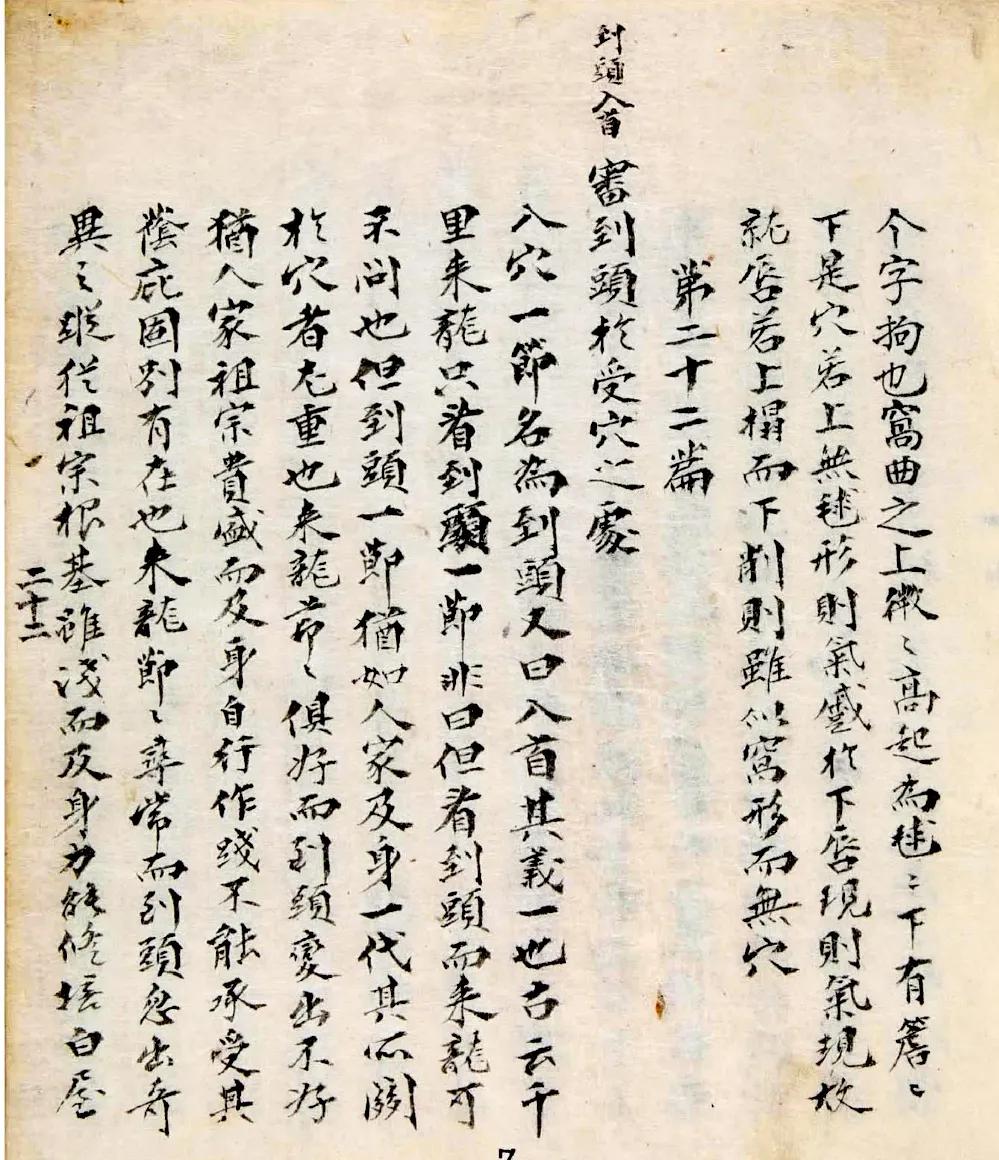 个字拘也窩曲之上微〻高起為毬〻下有簷〻
下是穴若上無毬形則氣蹙於下唇現則氣現故
就唇若上榻而下削則雖似窩形而無穴
第二十二篇
到頭入首 審到頭於受穴之處
入穴一節名為到頭又曰入首其義一也古云千
里来龍只看到頭一節非曰但看到頭而来龍可
不问也但到頭一節猶如人家及身一代其所関
於穴者尤重也来龍節〻俱好而到頭變出不好
猶人家祖宗貴盛而及身自行作践不能承受其
蔭庇固别有在也来龍節〻尋常而到頭忽出奇
異之蹤徔祖宗根基雖浅而及身力能修培白屋
二十二